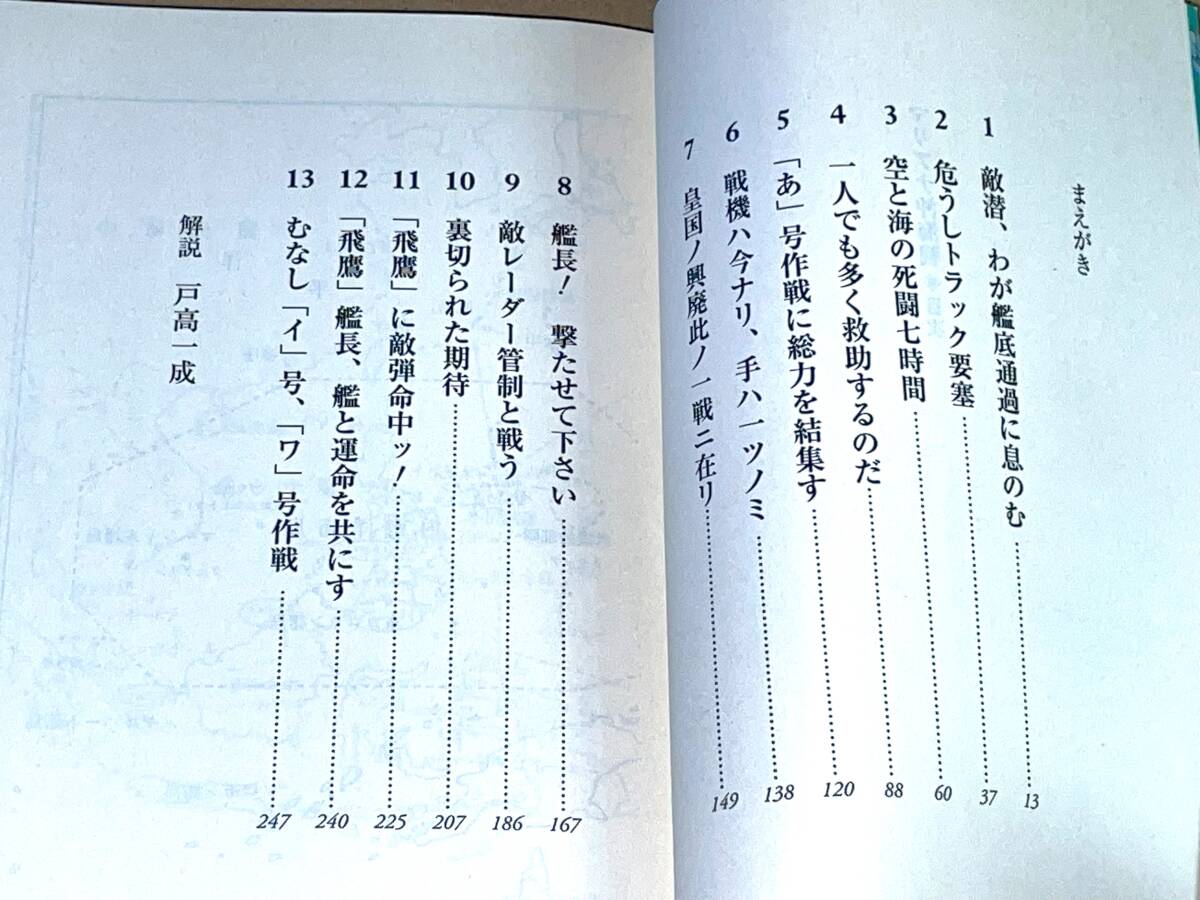 まえがき
1 敵潜、わが艦底通過に息のむ 13
2 危うしトラック要塞 37
3 空と海の死闘七時間 60
4 一人でも多く救助するのだ 88
5 「あ」号作戦に総力を結集す 120
6 戦機ハ今ナリ、手ハ一ツノミ 138
7 皇国ノ興廃此ノ一戦ニ在リ 149
8 艦長！ 撃たせて下さい 167
9 敵レーダー管制と戦う 186
10 裏切られた期待 207
11 「飛鷹」に敵弾命中ッ！ 225
12 「飛鷹」艦長、艦と運命を共にす 240
13 むなし「イ」号、「ワ」号作戦 247
解説 戸高一成